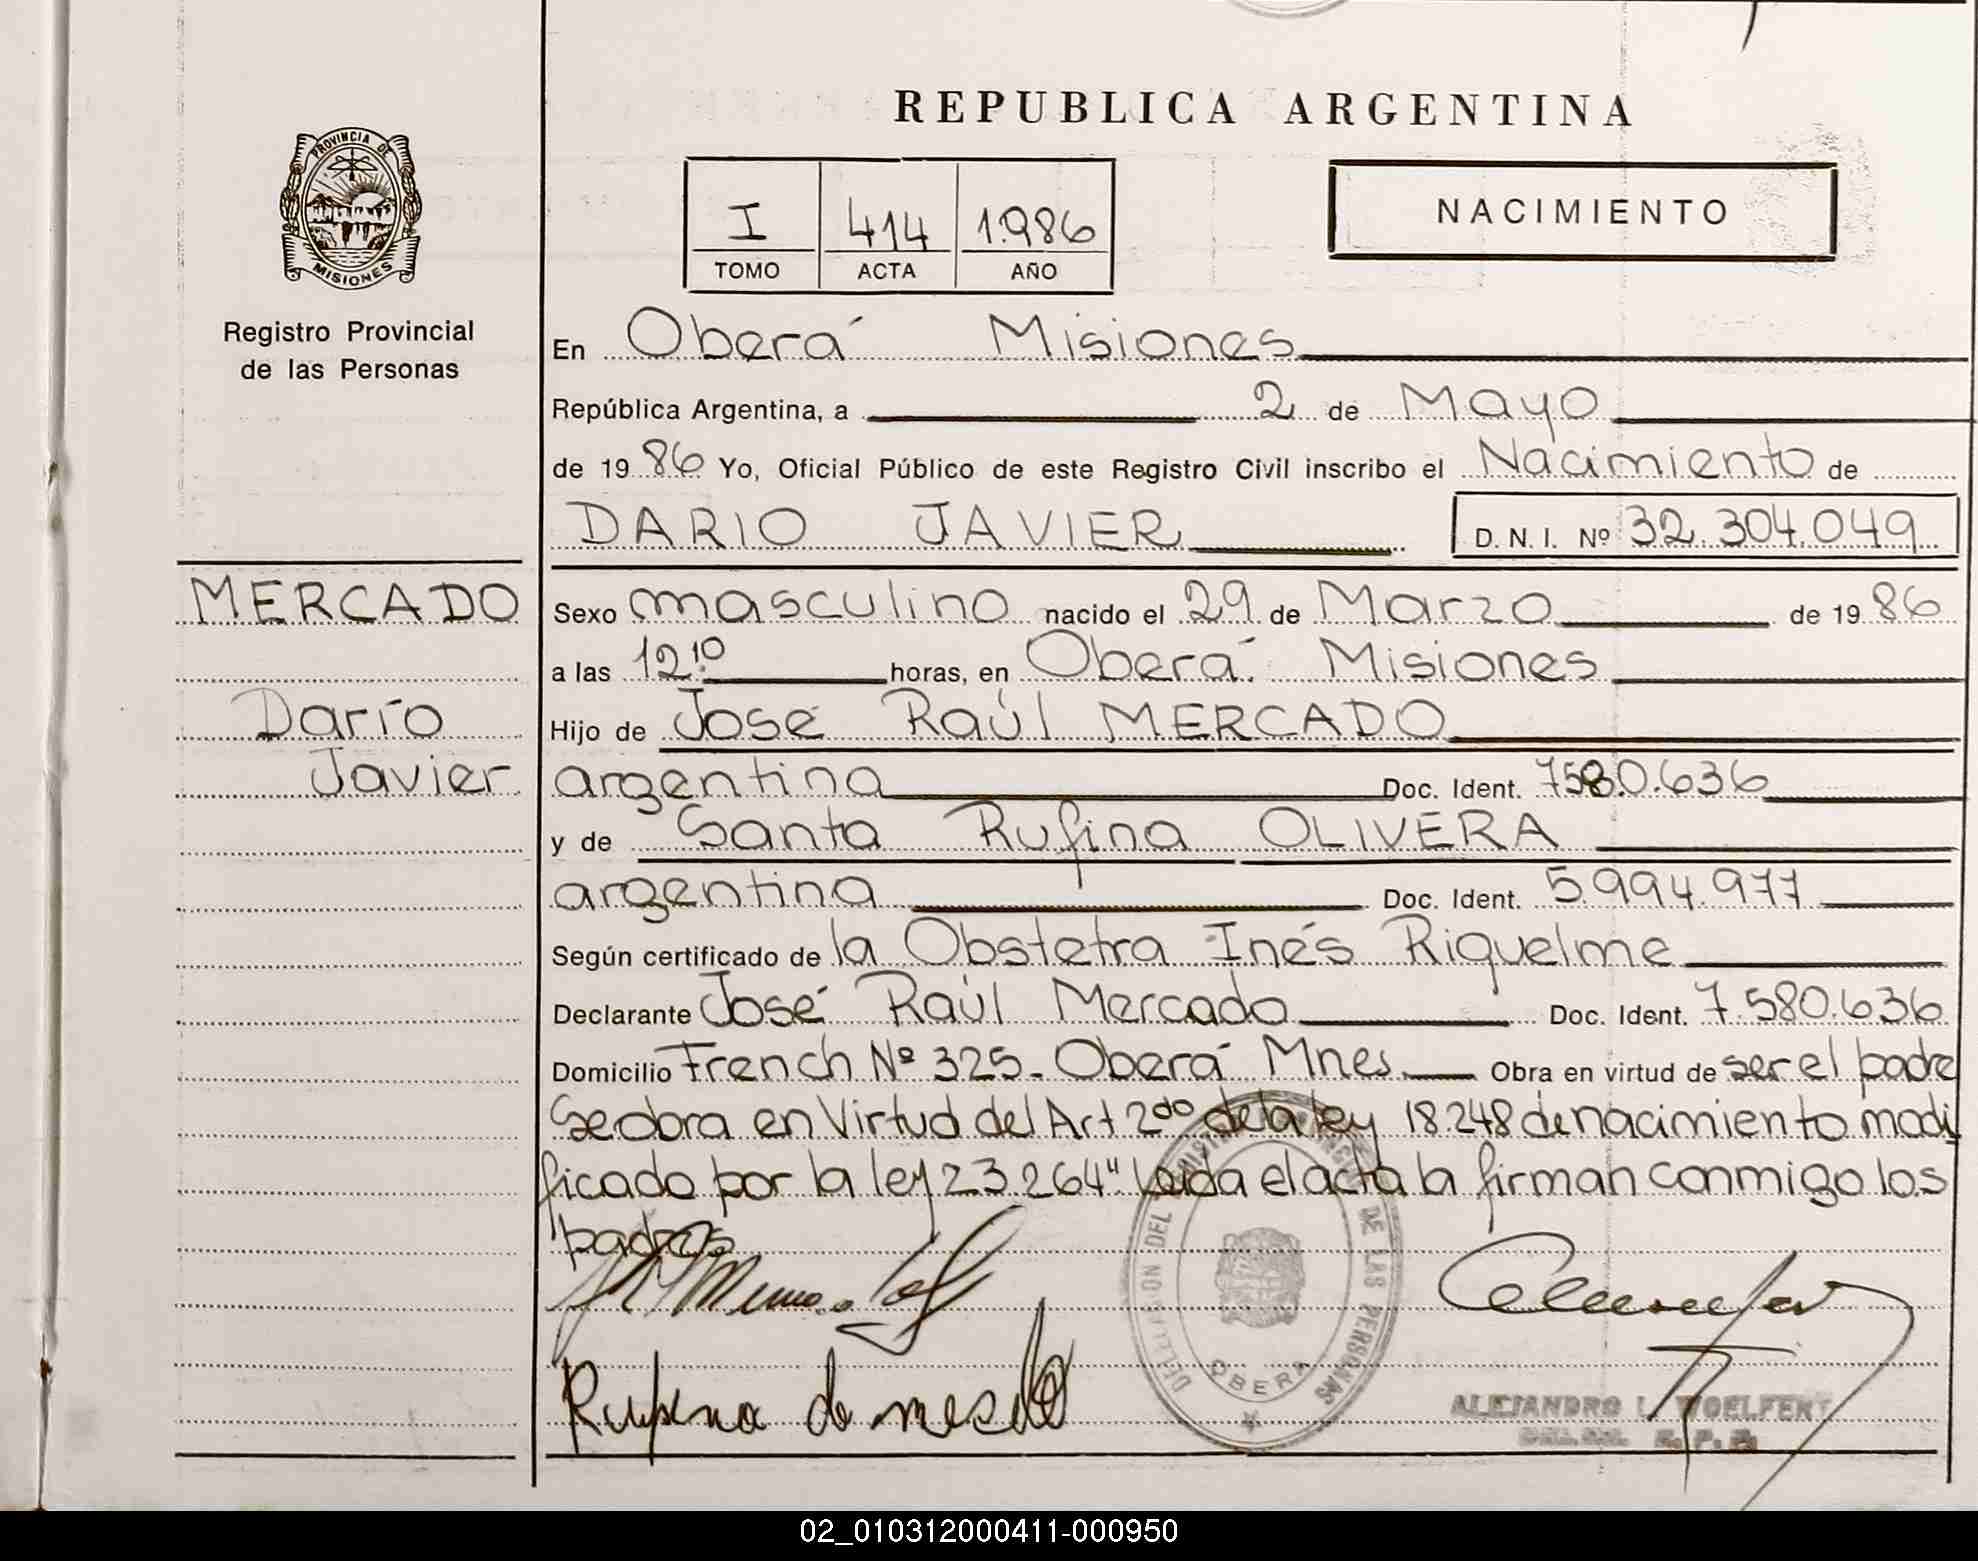 REPUBLICA ARGENTINA
PROVINCIA DE
MISIONES
Registro Provincial
de las Personas
I 414 1.986
TOMO ACTA AÑO
NACIMIENTO
En Oberá Misiones
República Argentina, a 2 de Mayo
de 19 86 Yo, Oficial Público de este Registro Civil inscribo el Nacimiento de
DARIO JAVIER D.N.I. Nº 32.304.049
MERCADO
Darío
Javier
Sexo masculino nacido el 29 de Marzo de 19 86
a las 12.10 horas, en Oberá Misiones
Hijo de José Raúl MERCADO
argentina Doc. Ident. 7580.636
y de Santa Rufina OLIVERA
argentina Doc. Ident. 5.994.977
Según certificado de la Obstetra Inés Riquelme
Declarante José Raúl Mercado Doc. Ident. 7.580.636
Domicilio French Nº 325. Oberá Mnes. Obra en virtud de ser el padre
Se obra en Virtud del Art 2do de la ley 18.248 de nacimiento modi
ficado por la ley 23.264" Leida el acta la firman conmigo los
padres
DE LAS PERSONAS
OBERA
Rufina de
ALEJANDRO L. WOELFERT
02_010312000411-000950